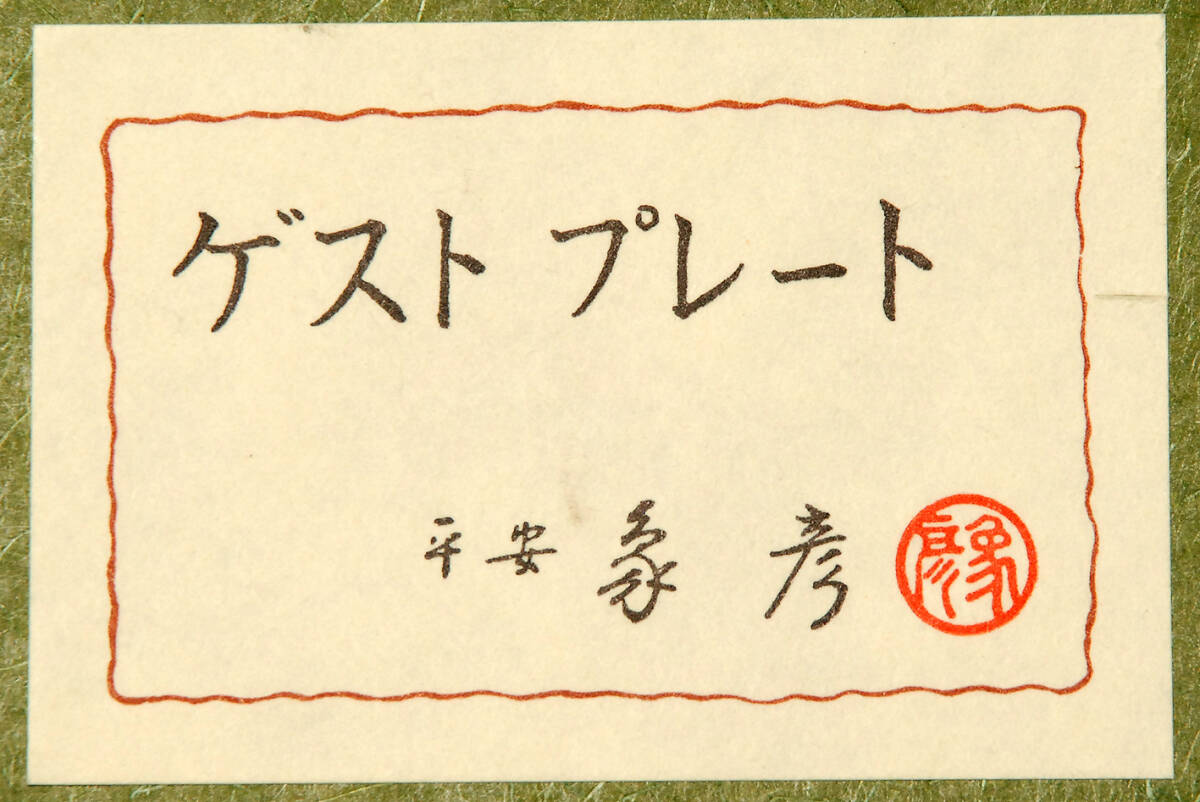 ゲスト プレート
平安 象彦
象彦